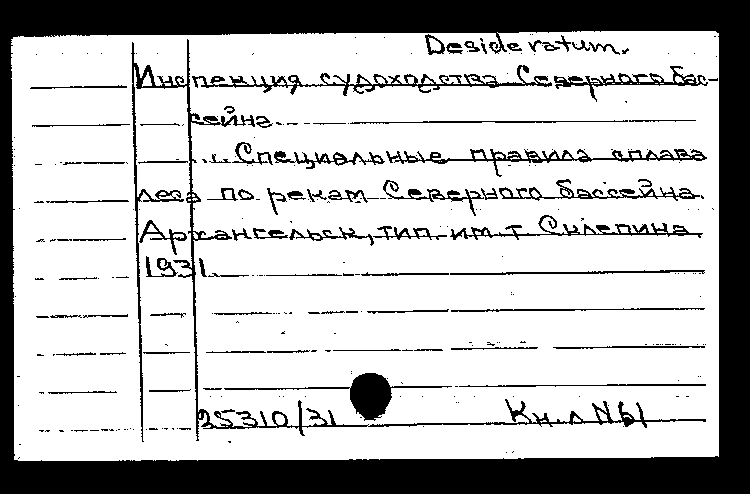 Desideratum.
Инспекция судоходства Северного бас-
сейна.
... Специальные правила сплава
леса по рекам Северного бассейна.
Архангельск, тип. им. т. Склепина
1931.
25310/31 Кн. л N61